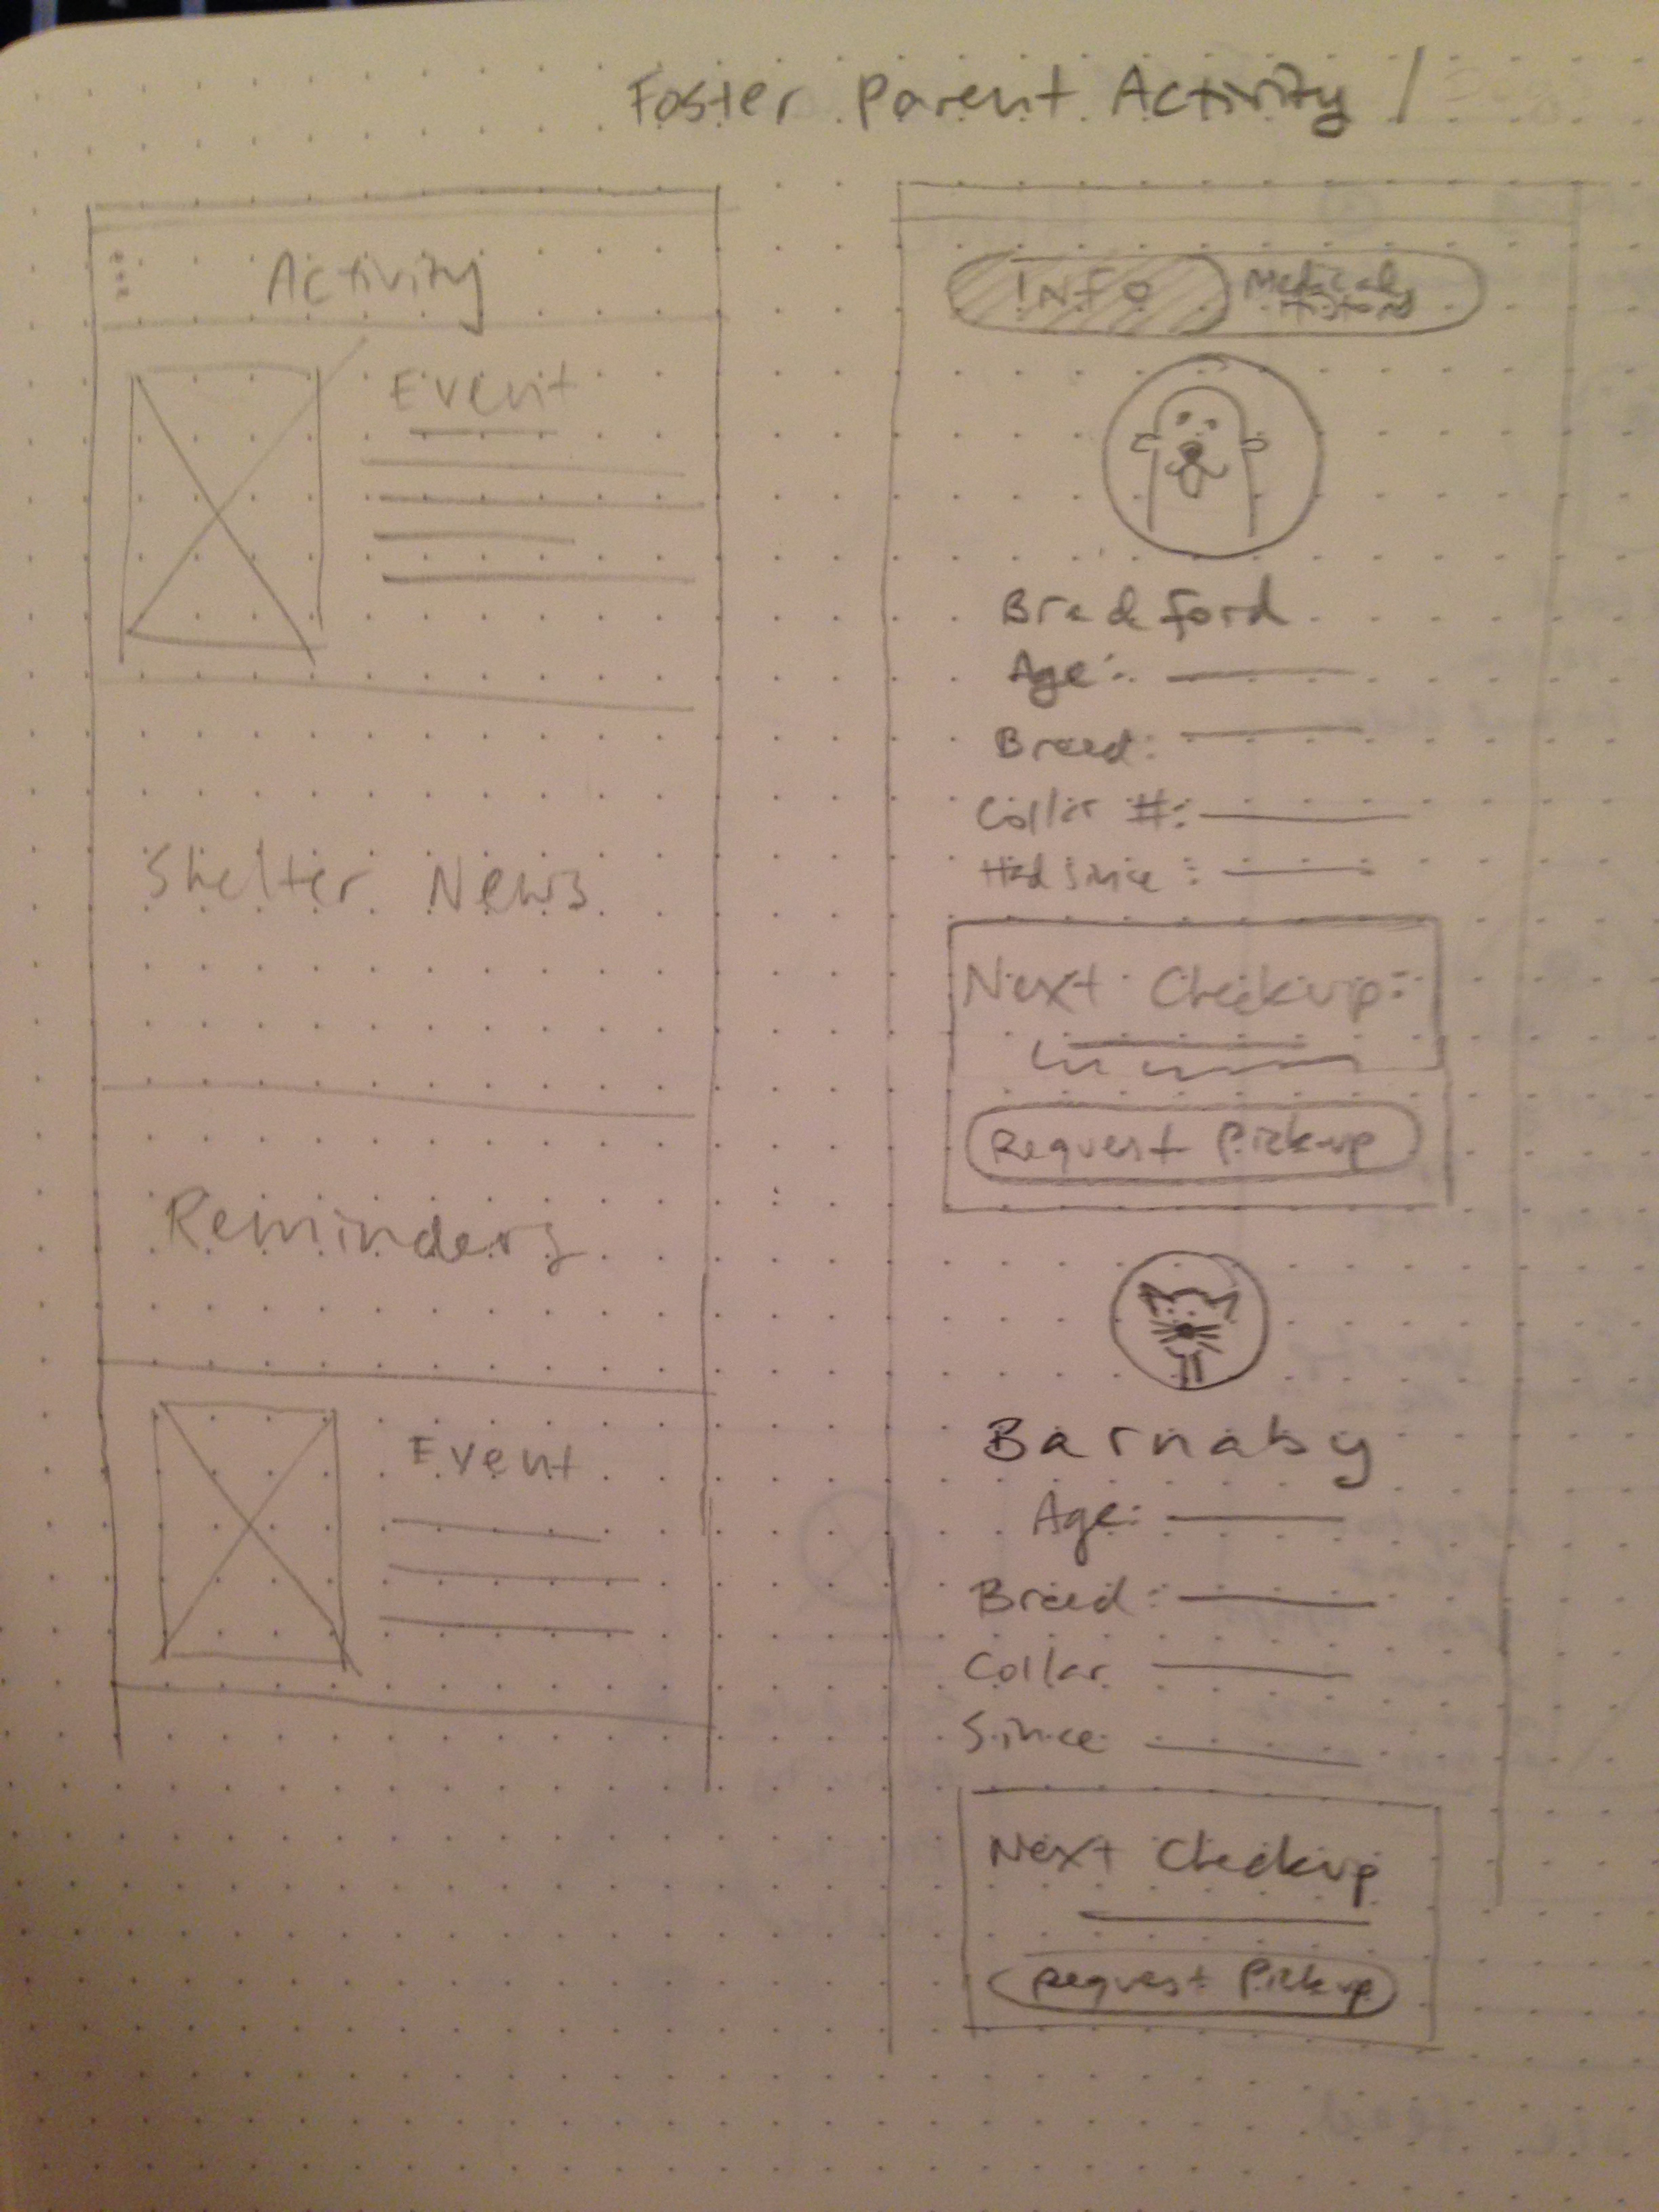 Foster Parent Activity /
Activity
Event
Shelter News
Reminders
Event
INFO
Medical History
Bradford
Age:
Breed:
Collar #:
Had since:
Next Checkup:
Request Pickup
Barnaby
Age:
Breed:
Collar
Since
Next Checkup
Request Pickup